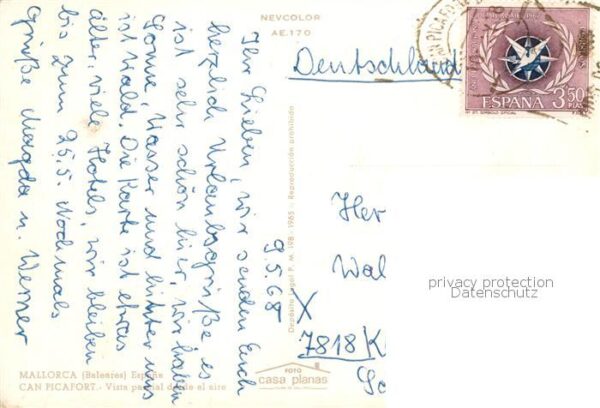 NEVCOLOR
AE.170
Deutschland
CAN PICAFORT
ESPAÑA 3'50
PTA
Ihr Lieben, wir senden Euch
herzlich Urlaubsgrüße es
ist sehr schön hier, wir haben
Sonne, Wasser und hinter uns
ist Wald. Die Karte ist etwas
älter, viele Hotels, wir bleiben
bis zum 25.5. Nochmals
Grüße Magda u. Werner
9.5.68
X
Her
Wal
7818 K
Depósito Legal P. M. 198 - 1965 - Reproducción prohibida
privacy protection
Datenschutz
MALLORCA (Baleares) España
CAN PICAFORT.- Vista parcial desde el aire
FOTO
casa planas